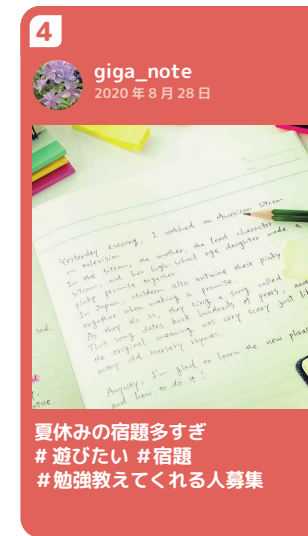 4
giga_note
2020年8月28日
Yesterday evening, I watched an American sitcom
on television.
In the sitcom, the mother, the lead character
sitcom, and her high school age daughter made a
pinky promise together.
In Japan, children also entwine their pinky
together when making a promise.
As they do so, they sing a song called,
This song dates back hundreds of years, and
the original meaning was very scary just li
many old nursery rhymes.
Anyway, I'm glad to learn the new phras
and how to do it!
夏休みの宿題多すぎ
# 遊びたい #宿題
#勉強教えてくれる人募集